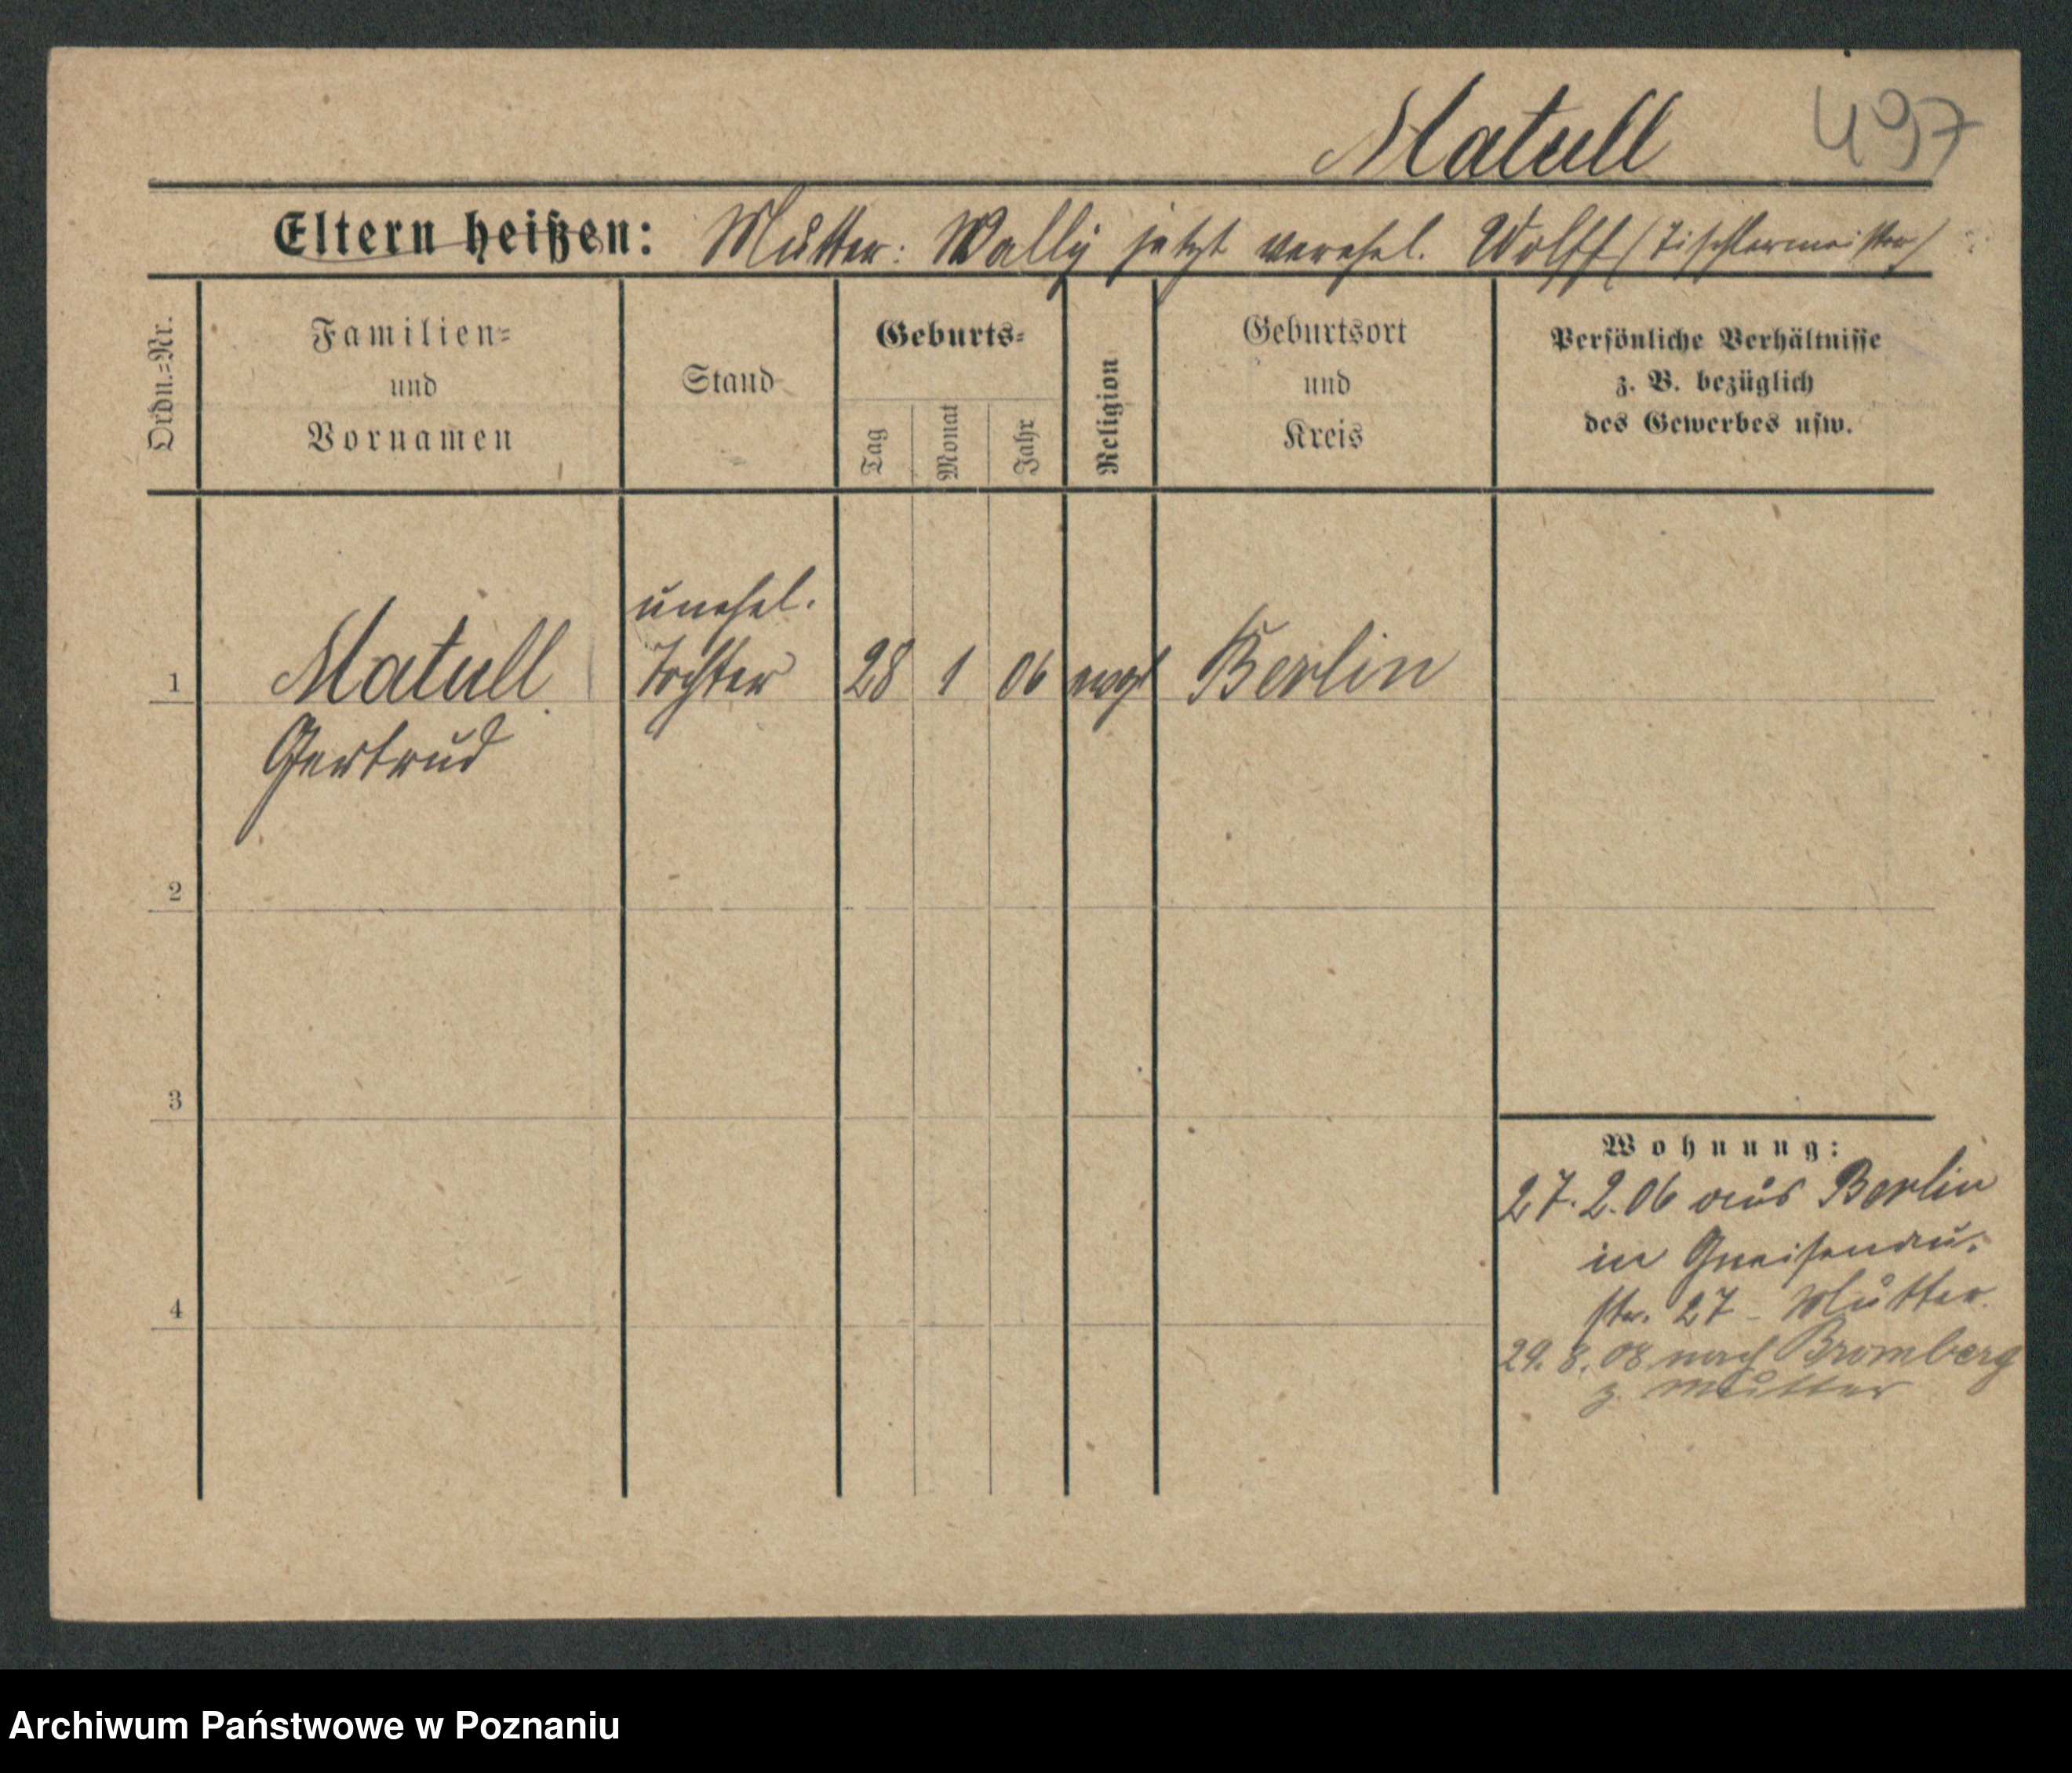 Matull 497
Eltern heißen: Mutter: Wally jetzt verehel. Wolff (Tischlermeister)
Ordn.=Nr.
Familien=
und
Vornamen
Stand
Geburts=
Tag
Monat
Jahr
Religion
Geburtsort
und
Kreis
Persönliche Verhältnisse
z. B. bezüglich
des Gewerbes usw.
unehel.
1 Matull Tochter 28 1 06 evgl Berlin
Gertrud
2
3
4
Wohnung:
27.2.06 aus Berlin
in Gneisenau-
str. 27 - Mutter.
29.8.08 nach Bromberg
z. Mutter
Archiwum Państwowe w Poznaniu